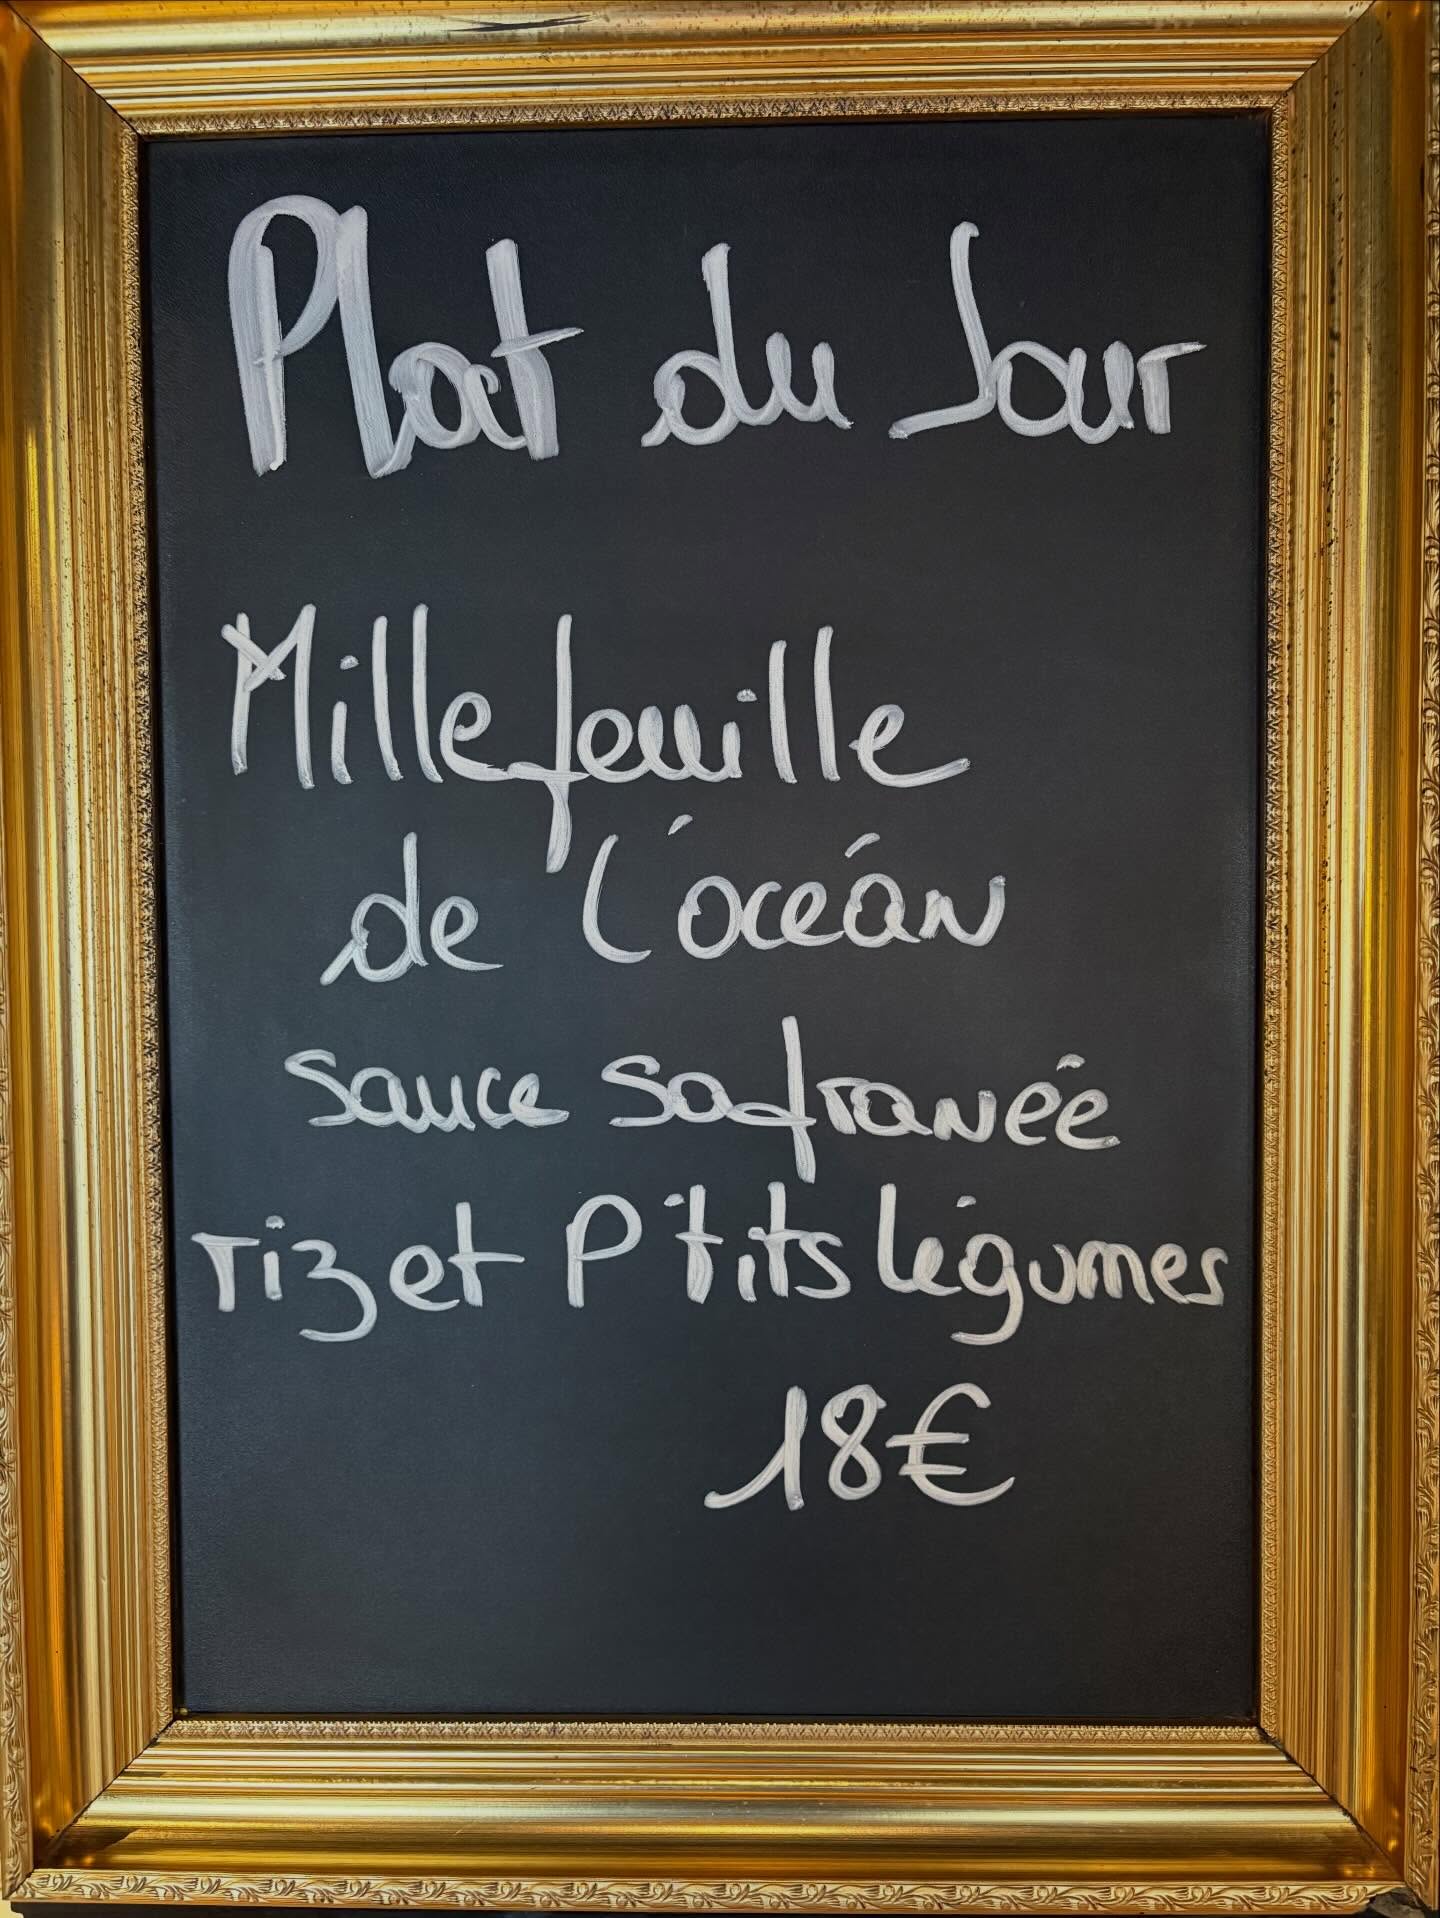 Plat du Jour
Millefeuille
de l'océan
sauce safranée
riz et P'tits légumes
18€